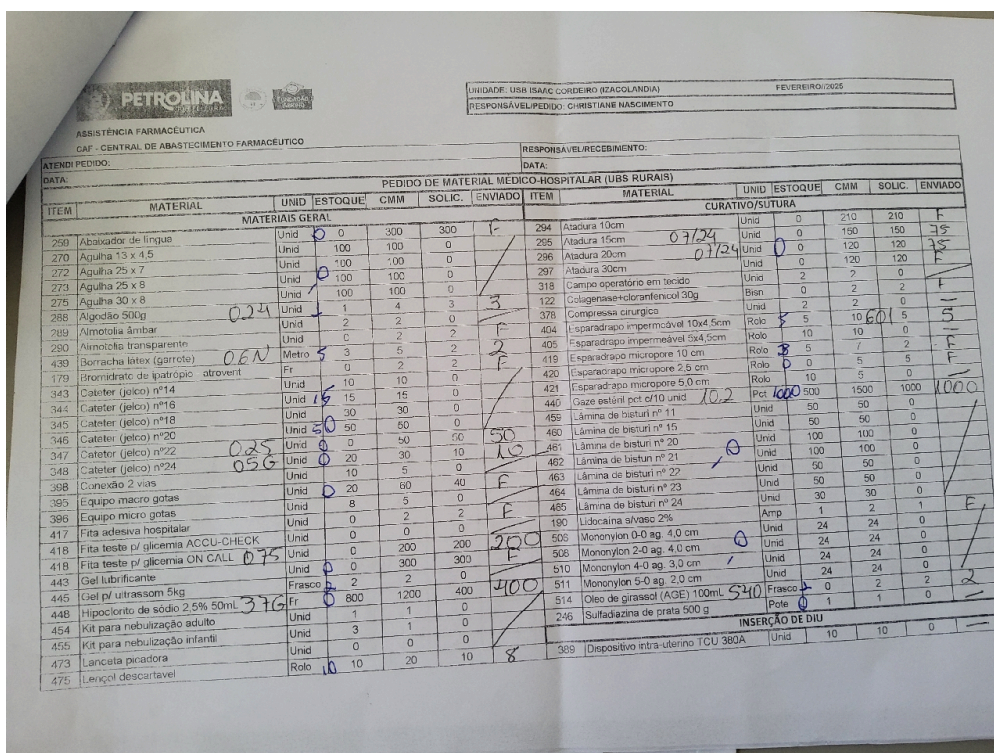 PETROLINA
UNIDADE: USB ISAAC CORDEIRO (IZACOLANDIA) FEVEREIRO//2025
RESPONSÁVEL/PEDIDO: CHRISTIANE NASCIMENTO
ASSISTÊNCIA FARMACÊUTICA
CAF - CENTRAL DE ABASTECIMENTO FARMACÊUTICO
ATENDI PEDIDO: RESPONSÁVEL/RECEBIMENTO:
DATA: DATA:
PEDIDO DE MATERIAL MÉDICO-HOSPITALAR (UBS RURAIS)
ITEM MATERIAL UNID ESTOQUE CMM SOLIC. ENVIADO
MATERIAIS GERAL
259 Abaixador de língua Unid 0 0 300 300 F
270 Agulha 13 x 4,5 Unid 100 100 0
272 Agulha 25 x 7 Unid 100 100 0
273 Agulha 25 x 8 Unid 0 100 100 0
275 Agulha 30 x 8 Unid 100 100 0
288 Algodão 500g 024 Unid 1 1 4 3 3
289 Almotolia âmbar Unid 2 2 0
290 Almotolia transparente Unid 0 2 2 F
439 Borracha látex (garrote) 06N Metro 5 3 5 2 2
179 Bromidrato de ipatrópio atrovent Fr 0 2 2 F
343 Cateter (jelco) nº14 Unid 10 10 0
344 Cateter (jelco) nº16 Unid 15 15 15 0
345 Cateter (jelco) nº18 Unid 30 30 0
346 Cateter (jelco) nº20 Unid 50 50 50 0
347 Cateter (jelco) nº22 025 Unid 0 0 50 50 50
348 Cateter (jelco) nº24 05G Unid 0 20 30 10 10
398 Conexão 2 vias Unid 10 5 0
395 Equipo macro gotas Unid 0 20 60 40 F
396 Equipo micro gotas Unid 8 5 0
417 Fita adesiva hospitalar Unid 0 2 2 F
418 Fita teste p/ glicemia ACCU-CHECK Unid 0 0 0
418 Fita teste p/ glicemia ON CALL 075 Unid 0 200 200 200
443 Gel lubrificante Unid 0 0 300 300 F
445 Gel p/ ultrassom 5kg Frasco 2 2 2 0
448 Hipoclorito de sódio 2,5% 50mL 37G Fr 0 800 1200 400 400
454 Kit para nebulização adulto Unid 1 1 0
455 Kit para nebulização infantil Unid 3 1 0
473 Lanceta picadora Unid 0 0 0
475 Lençol descartavel Rolo 10 10 20 10 8
ITEM MATERIAL UNID ESTOQUE CMM SOLIC. ENVIADO
CURATIVO/SUTURA
294 Atadura 10cm Unid 0 210 210 F
295 Atadura 15cm 07/24 Unid 0 150 150 75
296 Atadura 20cm 07/24 Unid 0 0 120 120 75
297 Atadura 30cm Unid 0 120 120 F
318 Campo operatório em tecido Unid 2 2 0
122 Colagenase+cloranfenicol 30g Bisn 0 2 2 F
378 Compressa cirurgica Unid 2 2 0
404 Esparadrapo impermeável 10x4,5cm Rolo 5 5 10 601 5 5
405 Esparadrapo impermeável 5x4,5cm Rolo 10 10 0
419 Esparadrapo micropore 10 cm Rolo 3 5 7 2 F
420 Esparadrapo micropore 2,5 cm Rolo 0 0 5 5 F
421 Esparadrapo micropore 5,0 cm Rolo 10 5 0
440 Gaze estéril pct c/10 unid 10.2 Pct 1000 500 1500 1000 1000
459 Lâmina de bisturi nº 11 Unid 50 50 0
460 Lâmina de bisturi nº 15 Unid 50 50 0
461 Lâmina de bisturi nº 20 Unid 100 100 0
462 Lâmina de bisturi nº 21 0 Unid 100 100 0
463 Lâmina de bisturi nº 22 Unid 50 50 0
464 Lâmina de bisturi nº 23 Unid 50 50 0
465 Lâmina de bisturi nº 24 Unid 30 30 0
190 Lidocaina s/vaso 2% Amp 1 2 1 F
508 Mononylon 0-0 ag. 4,0 cm Unid 24 24 0
508 Mononylon 2-0 ag. 4,0 cm 0 Unid 24 24 0
510 Mononylon 4-0 ag. 3,0 cm Unid 24 24 0
511 Mononylon 5-0 ag. 2,0 cm Unid 24 24 0
514 Oleo de girassol (AGE) 100mL 540 Frasco 0 2 2 2
246 Sulfadiazina de prata 500 g Pote 0 1 1 0
INSERÇÃO DE DIU
389 Dispositivo intra-uterino TCU 380A Unid 10 10 0